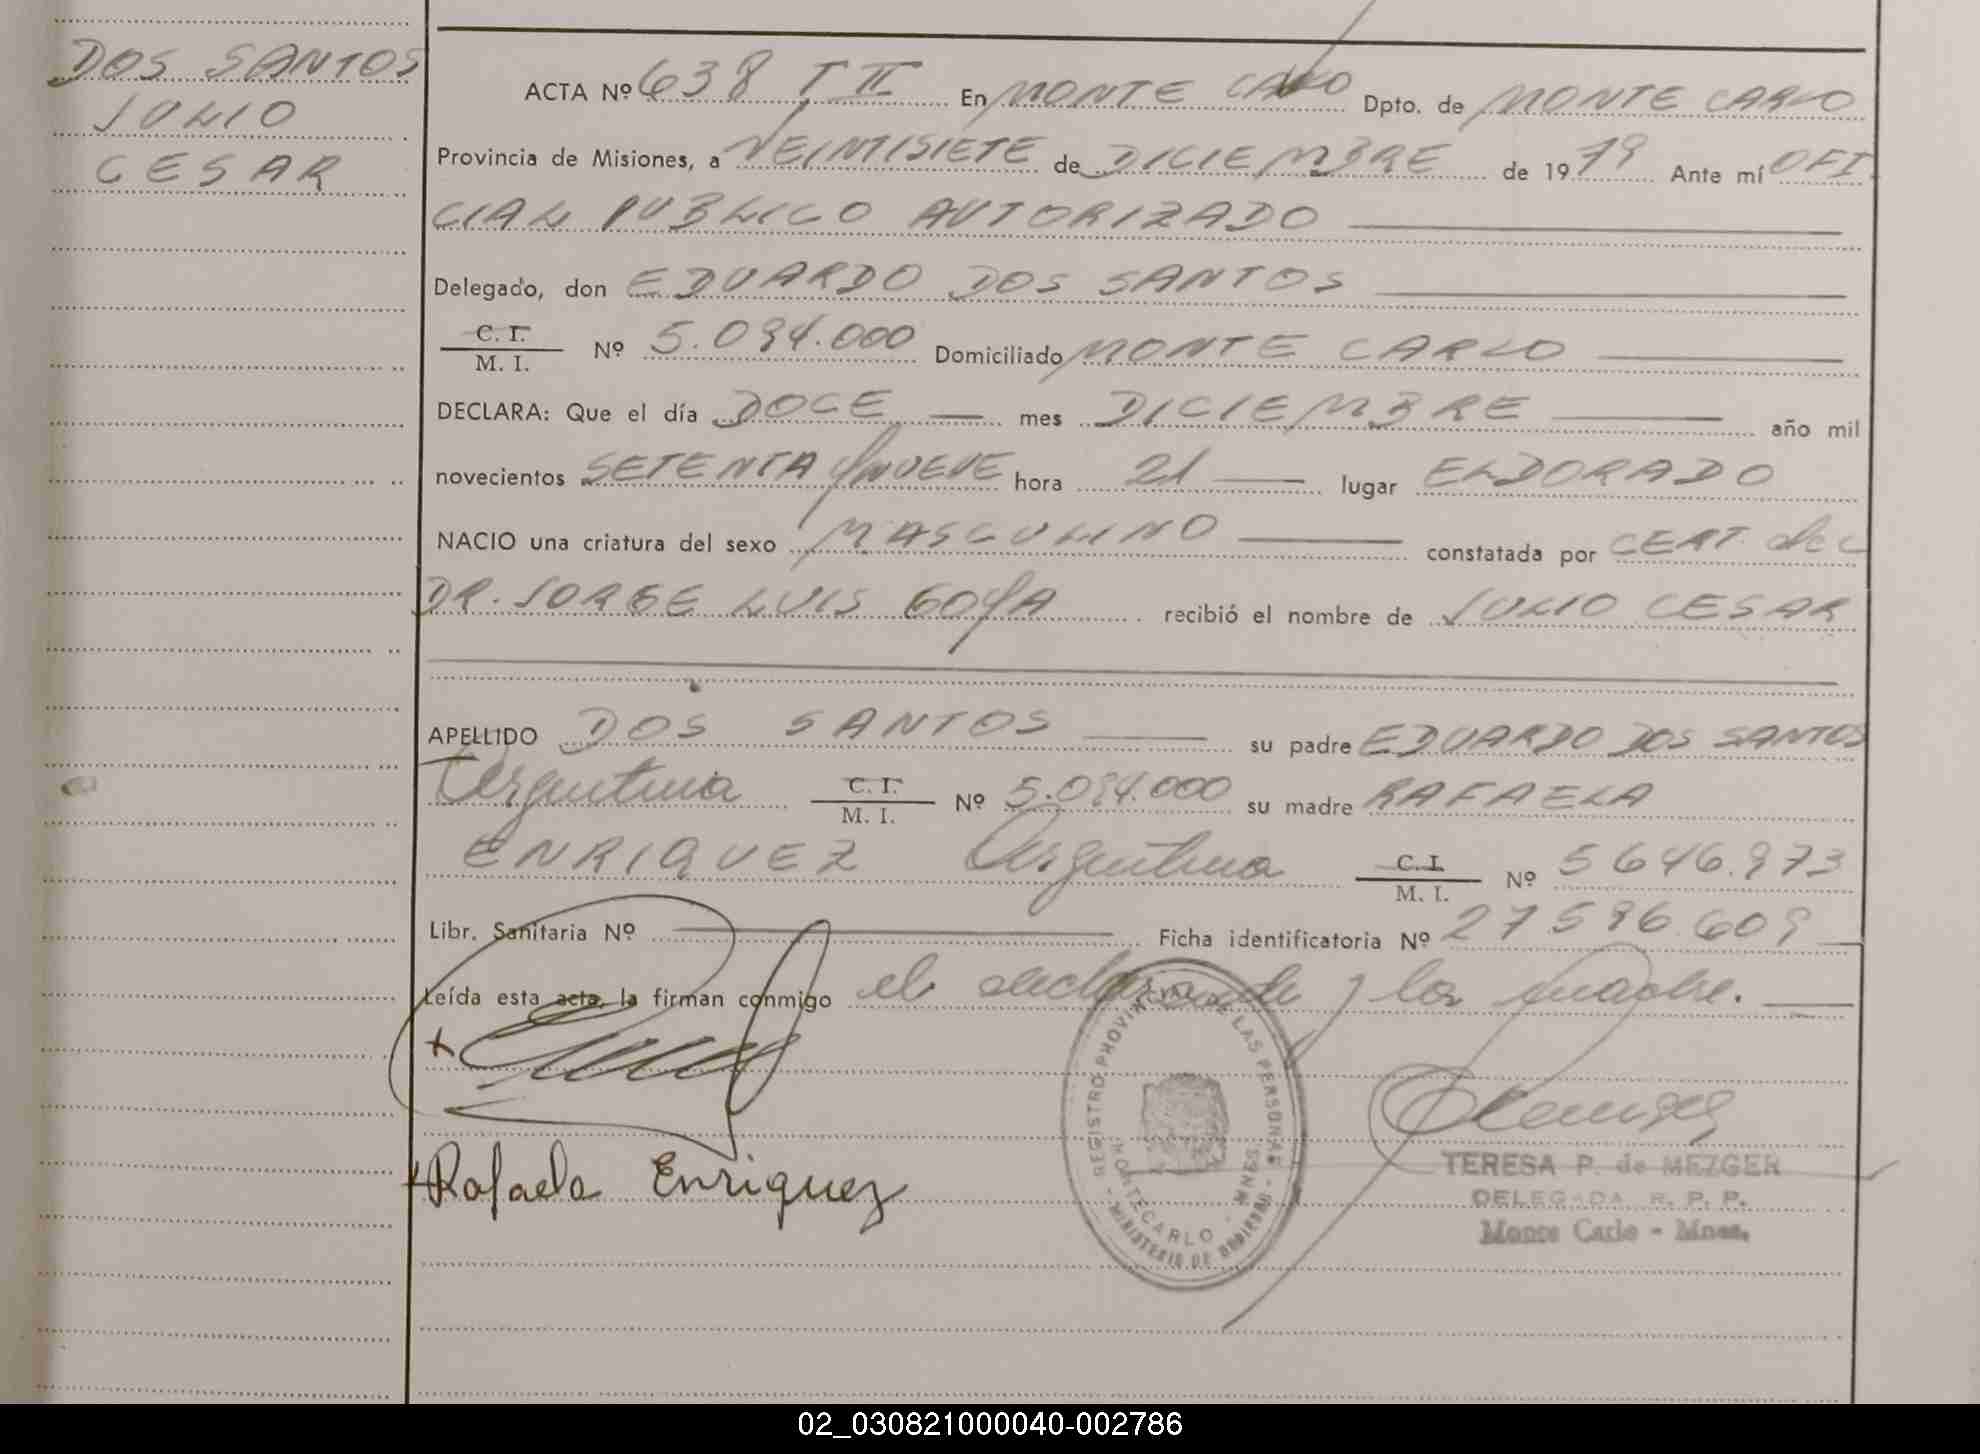 DOS SANTOS
JULIO
CESAR
ACTA Nº 638 T II En MONTE CARLO Dpto. de MONTE CARLO
Provincia de Misiones, a VEINTISIETE de DICIEMBRE de 1979 Ante mí OFI
CIAL PUBLICO AUTORIZADO
Delegado, don EDUARDO DOS SANTOS
C. I.
M. I. Nº 5.094.000 Domiciliado MONTE CARLO
DECLARA: Que el día DOCE mes DICIEMBRE año mil
novecientos SETENTA y NUEVE hora 21 lugar ELDORADO
NACIO una criatura del sexo MASCULINO constatada por CERT. del
DR. JORGE LUIS GOYA recibió el nombre de JULIO CESAR
APELLIDO DOS SANTOS su padre EDUARDO DOS SANTOS
Argentina C. I. M. I. Nº 5.094.000 su madre RAFAELA
ENRIQUEZ Argentina C. I. M. I. Nº 5646.973
Libr. Sanitaria Nº Ficha identificatoria Nº 27596609
Leída esta acta, la firman conmigo el declarante y la madre.
Rafaela Enriquez
REGISTRO PROVINCIAL DE LAS PERSONAS
MONTECARLO - MNES.
MINISTERIO DE GOBIERNO
TERESA P. de MEZGER
DELEGADA R. P. P.
Monte Carlo - Mnes.
02_030821000040-002786